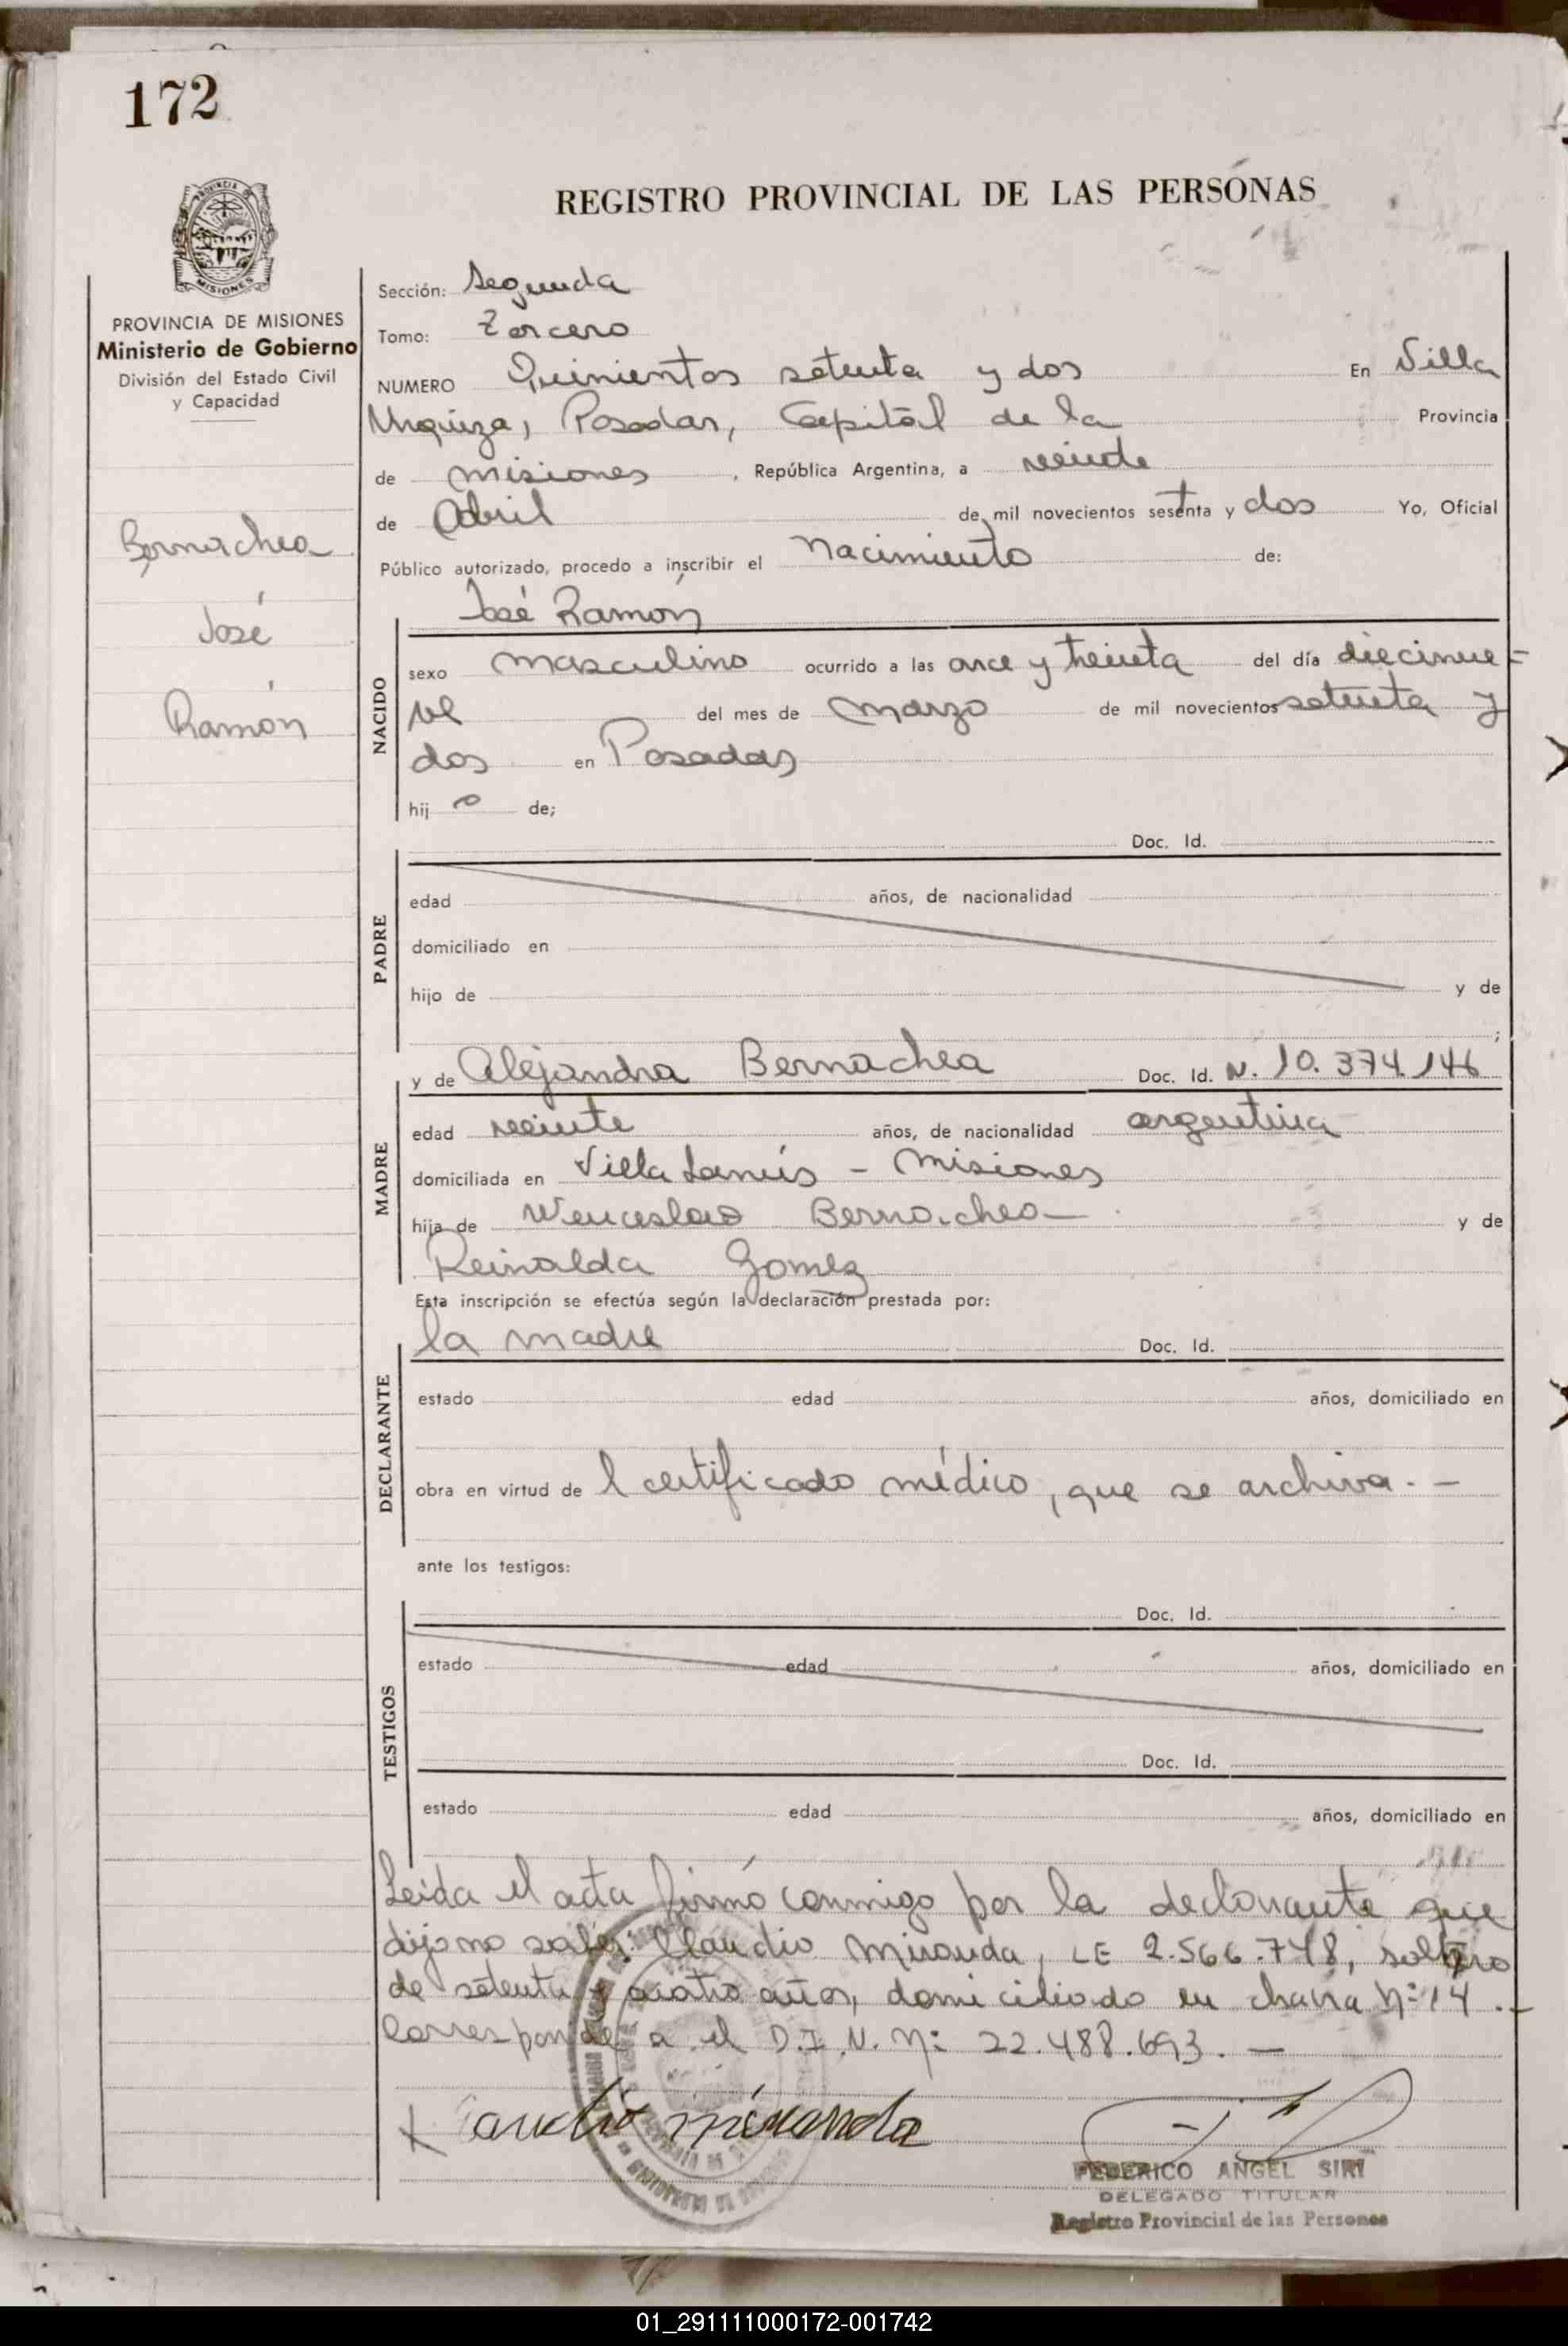 172
REGISTRO PROVINCIAL DE LAS PERSONAS
MISIONES
PROVINCIA DE MISIONES
Ministerio de Gobierno
División del Estado Civil
y Capacidad
Bernachea
José
Ramón
Sección: Segunda
Tomo: Tercero
NUMERO Quinientos setenta y dos En Villa
Urquiza, Posadas, Capital de la Provincia
de misiones, República Argentina, a veinte
de Abril de mil novecientos sesenta y dos Yo, Oficial
Público autorizado, procedo a inscribir el nacimiento de:
José Ramón
NACIDO
sexo masculino ocurrido a las once y treinta del día diecinue=
ve del mes de marzo de mil novecientos setenta y
dos en Posadas
hij o de;
Doc. Id.
PADRE
edad años, de nacionalidad
domiciliado en
hijo de y de
;
MADRE
y de Alejandra Bernachea Doc. Id. N. 10.374.146
edad veinte años, de nacionalidad argentina
domiciliada en Villa Lanús - Misiones
hija de Wenceslao Bernachea y de
Reinalda Gomez
Esta inscripción se efectúa según la declaración prestada por:
la madre Doc. Id.
DECLARANTE
estado edad años, domiciliado en
obra en virtud de l certificado médico, que se archiva. -
ante los testigos:
Doc. Id.
TESTIGOS
estado edad años, domiciliado en
Doc. Id.
estado edad años, domiciliado en
Leída el acta firmó conmigo por la declarante que
dijo no saber: Claudio Miranda, LE 2.566.748, soltero
de setenta y cuatro años, domiciliado en chacra Nº 14.-
Corresponde a el D.I.N. Nº 22.488.693. -
Miranda
FEDERICO ANGEL SIRI
DELEGADO TITULAR
Registro Provincial de las Personas
01_291111000172-001742